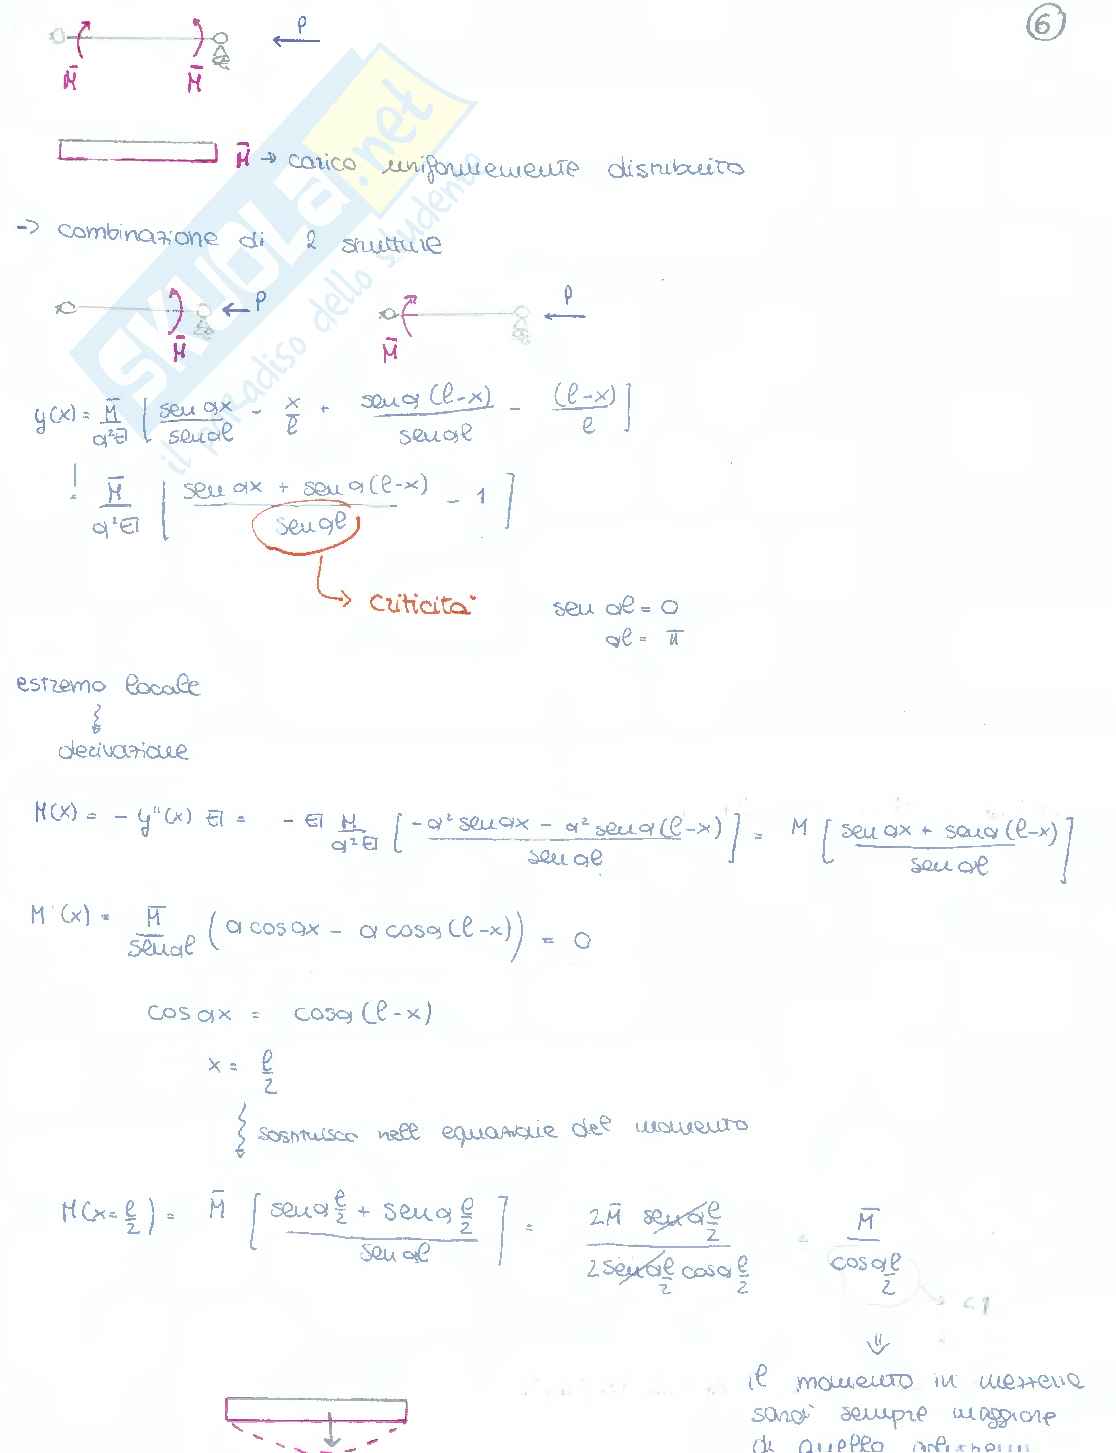 6
P
M̄ M̄
M̄ → carico uniformemente distribuito
→ combinazione di 2 strutture
P P
M̄ M̄
y(x) = M̄/a²EI [ sen ax / sen al - x/l + sen a(l-x) / sen al - (l-x)/l ]
= M̄/a²EI [ (sen ax + sen a(l-x)) / sen al - 1 ]
→ criticità
sen al = 0
al = π
estremo locale
derivazione
M(x) = - y''(x) EI = - EI M/a²EI [ (-a² sen ax - a² sen a(l-x)) / sen al ] = M [ (sen ax + sen a(l-x)) / sen al ]
M'(x) = M̄/sen al ( a cos ax - a cos a(l-x) ) = 0
cos ax = cos a(l-x)
x = l/2
sostituisco nell equazione del momento
M(x=l/2) = M̄ [ (sen a l/2 + sen a l/2) / sen al ] = 2M̄ sen a l/2 / 2 sen a l/2 cos a l/2 = M̄ / cos a l/2
→ <1
⇓
il momento in mezzeria
sarà sempre maggiore
di quello
SKUOLA.net
il paradiso dello studente